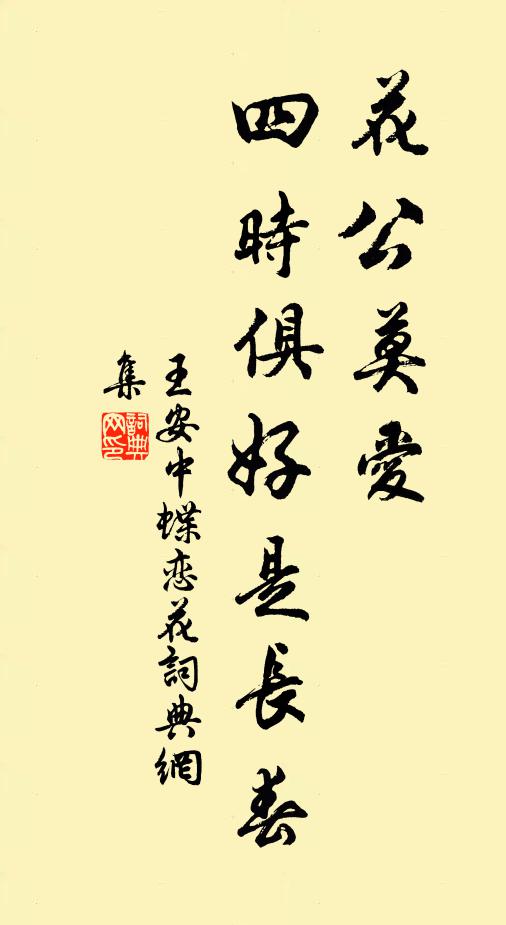 花公莫愛
四時俱好是長春
王安中蝶恋花詞典網
集
詞典
网印